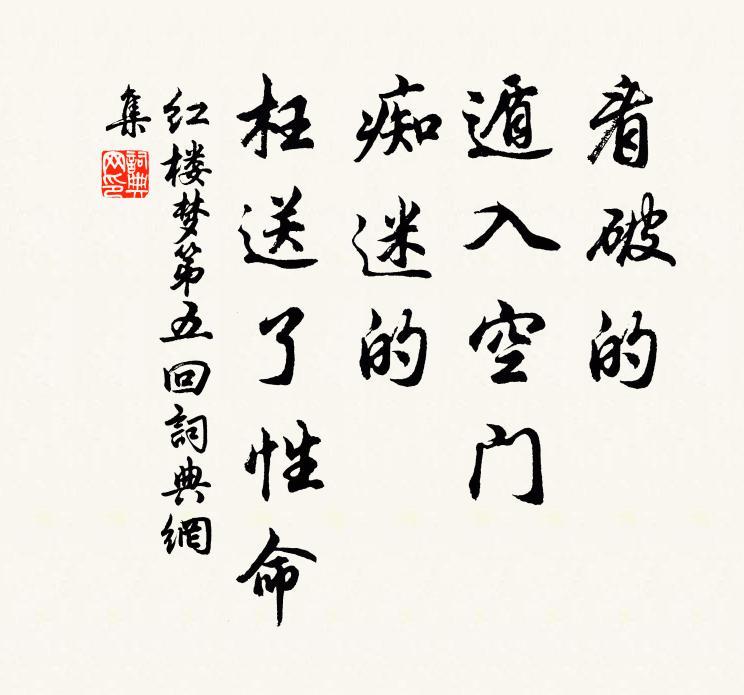 看破的
遁入空门
痴迷的
枉送了性命
红楼梦第五回詞典網
集
詞典
网印